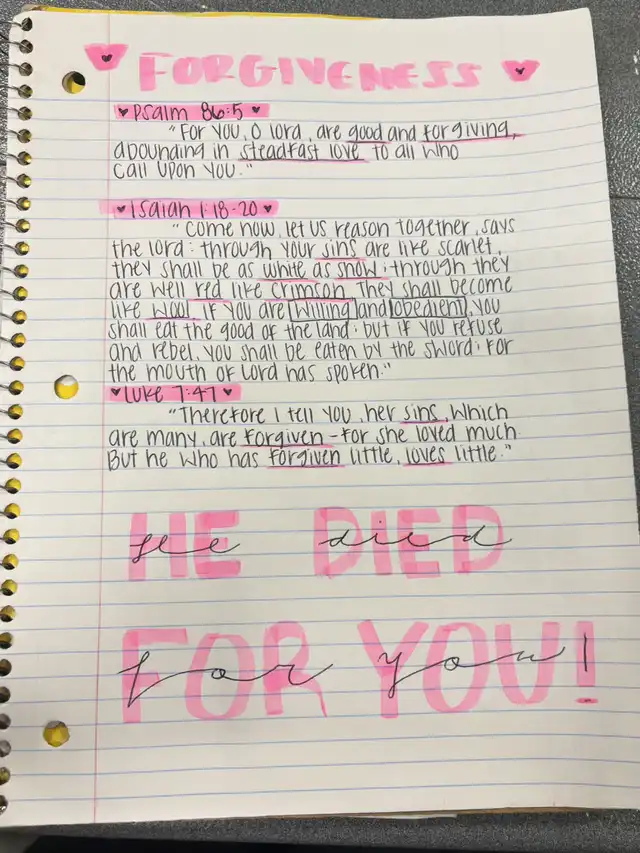 FORGIVENESS
Psalm 86:5
"For you, O lord, are good and forgiving,
abounding in steadfast love to all who
call upon you."
Isaiah 1:18-20
"Come now, let us reason together, says
the lord: through your sins are like scarlet,
they shall be as white as snow; through they
are well red like crimson they shall become
like wool. If you are willing and obedient, you
shall eat the good of the land; but if you refuse
and rebel, you shall be eaten by the sword; for
the mouth of Lord has spoken."
Luke 7:47
"Therefore I tell you, her sins, which
are many, are forgiven - for she loved much.
But he who has forgiven little, loves little."
HE DIED
he died
FOR YOU!
for you!